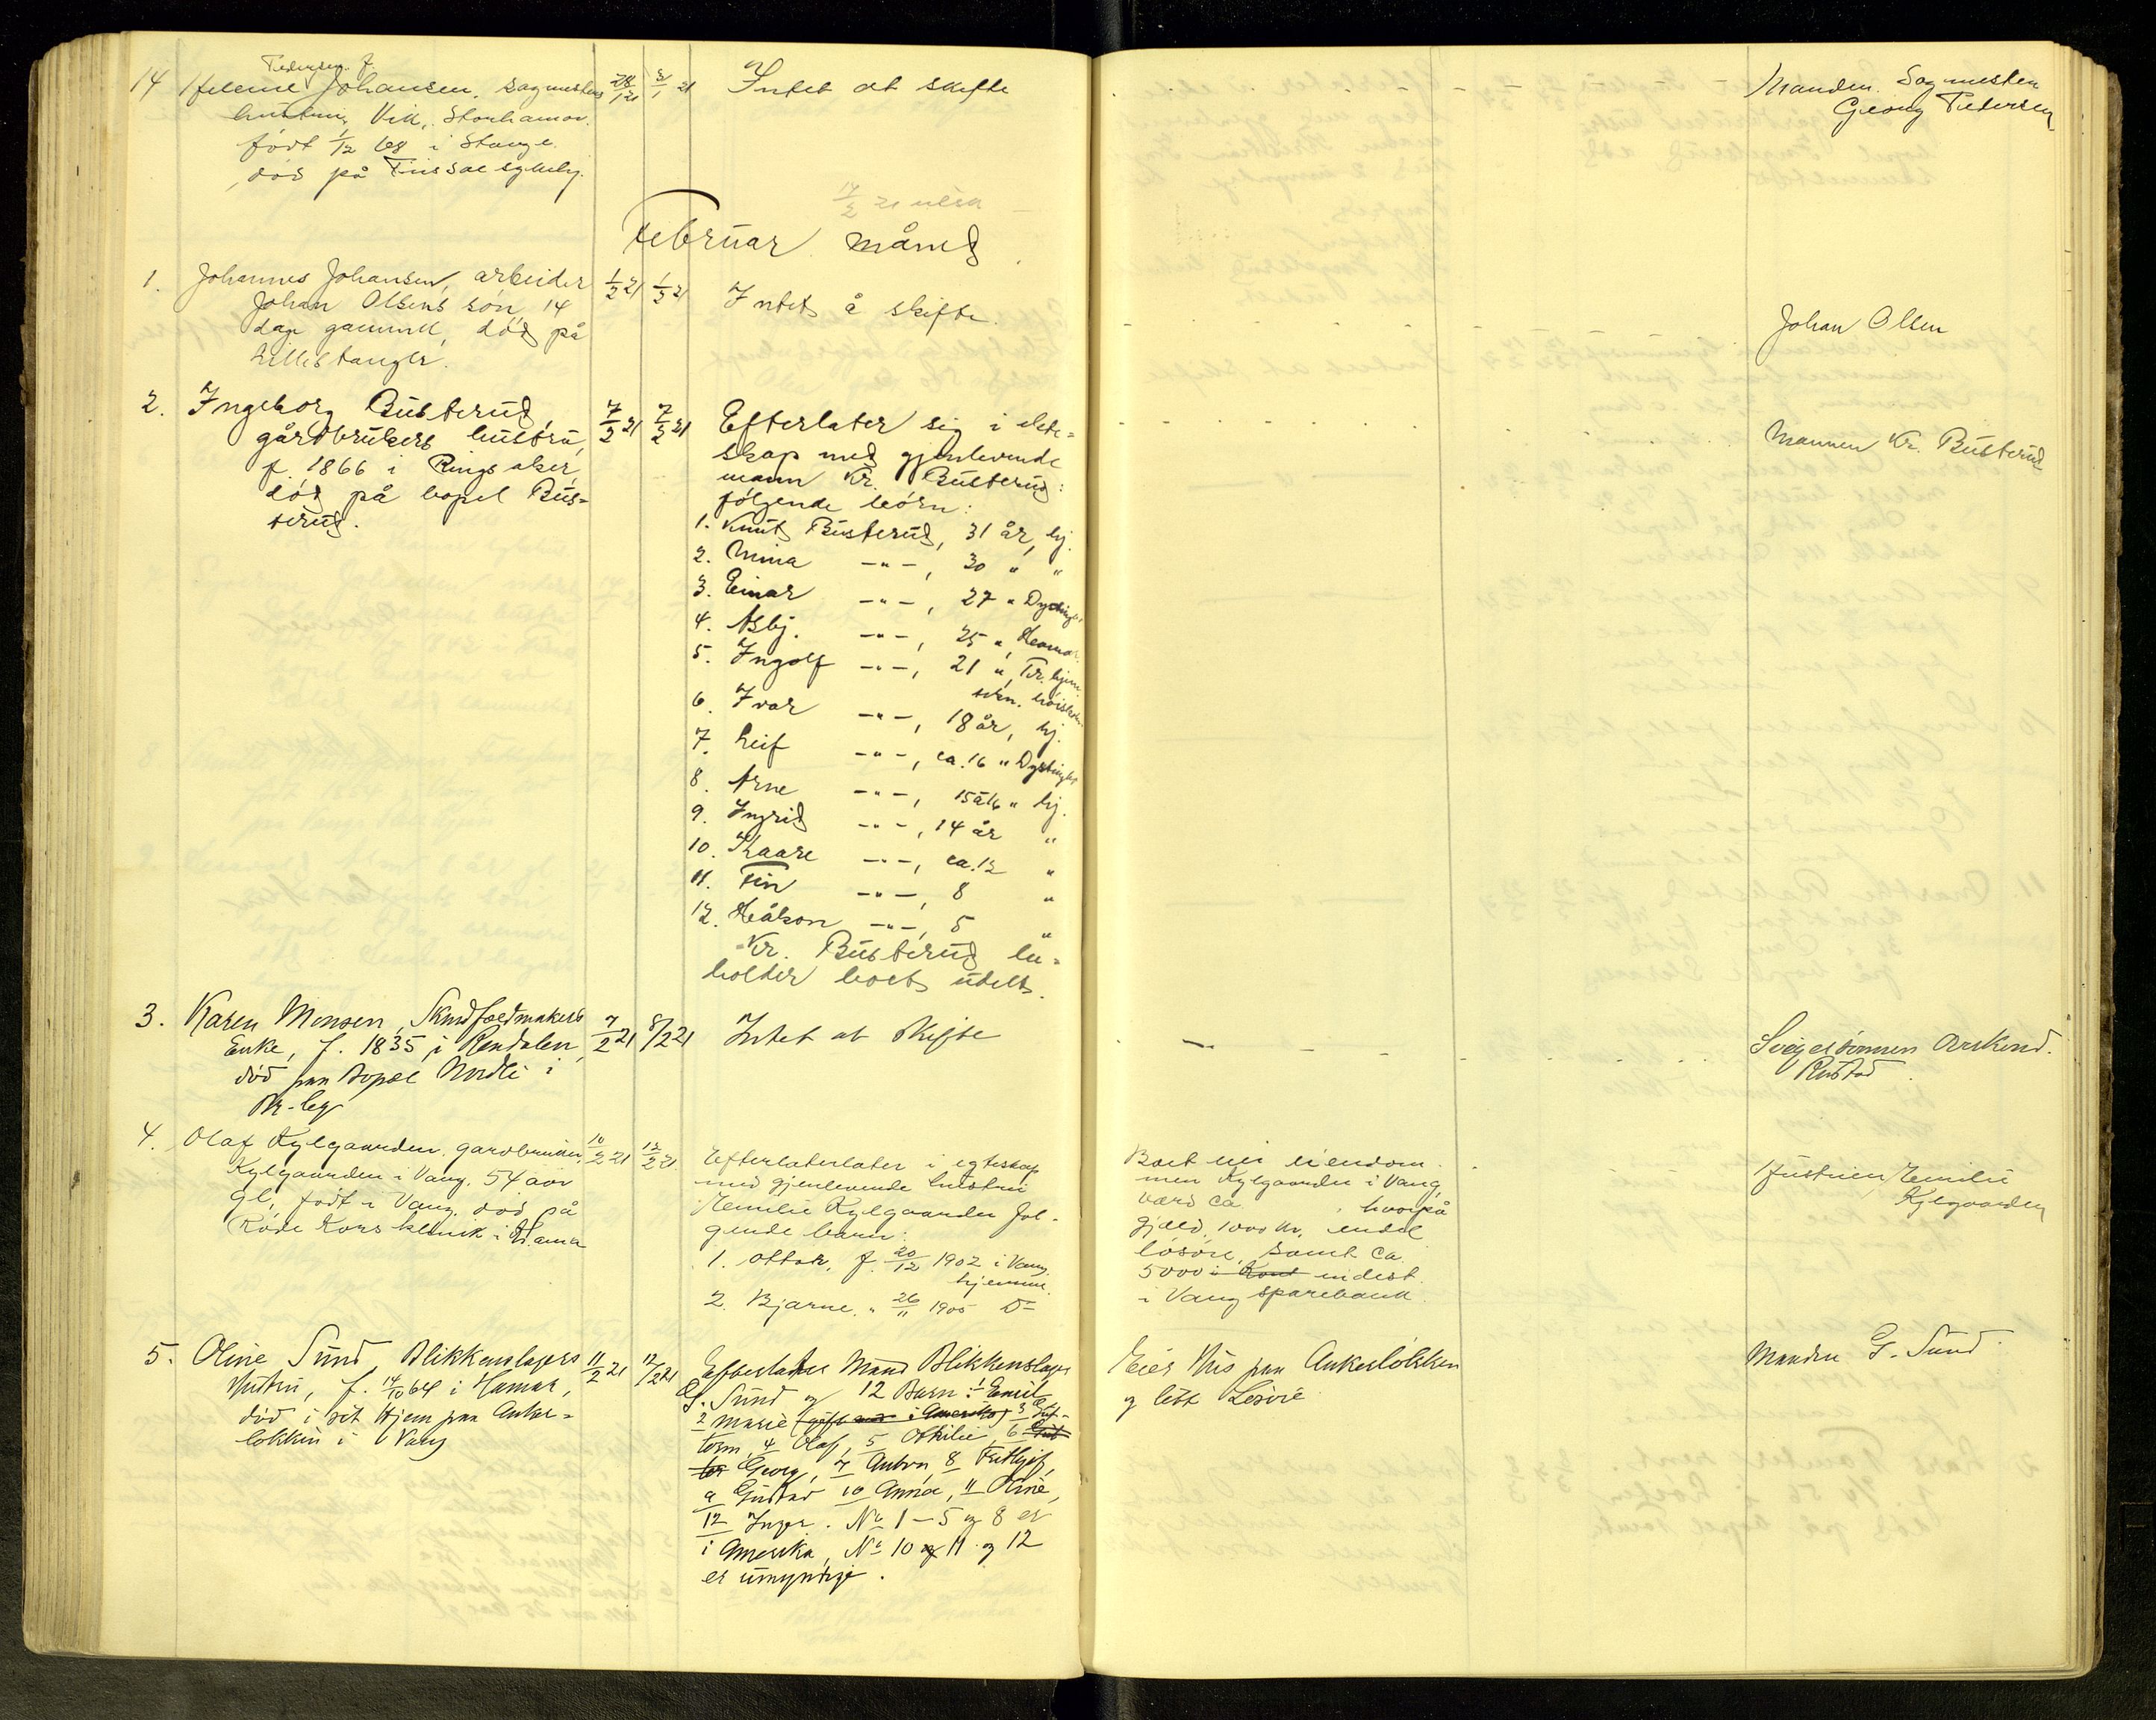 Pedersen f.
14 Helene Johansen, sagmesters 28/1 21 31/1 21 Intet at skifte Manden. Sagmester
hustru, Vik, Storhamar. Georg Pedersen
født 1/12 68 i Stange.
død på
14/2 21
Februar måned
1. Johannes Johansen, arbeider 1/2 21 1/2 21 Intet å skifte.
Johan Olsens søn, 14 Johan Olsen
dage gammel, død på
Lillestanger.
2. Ingeborg Busterud, 7/2 21 7/2 21 Efterlater sig i ekte- Mannen Kr. Busterud
gårdbrukers hustru, skap med gjenlevende
f. 1866 i Ringsaker, mann Kr. Busterud:
død på bopel Bus- følgende børn:
terud. 1. Knut Busterud, 31 år, hj.
2. Mina —"—, 30 " "
3. Einar —"—, 27 " Dystingbo
4. Asbj. —"—, 25 ", Hamar.
5. Ingolf —"—, 21 ", Tr.hjem
tekn. høiskole.
6. Ivar —"—, 18 år, hj.
7. Leif —"—, ca. 16 " Dystingbo
8. Arne —"—, 15 à 16 " hj.
9. Ingrid —"—, 14 år "
10. Kaare —"—, ca. 12 "
11. Fin —"—, 8 "
12. Håkon —"—, 5 "
Kr. Busterud be-
holder boet udelt.
3. Karen Monsen, Skindfeldmakers 7/2 21 8/2 21 Intet at skifte — Svigersønnen
Enke, f. 1835 i Rendalen, Rustad
død paa Bopæl Nordli i
4. Olaf Kylgaarden, gardbruker, 10/2 21 12/2 21 Efterlaterlater i egteskap Boet eier eiendom- Hustruen Emilie
Kylgaarden i Vang. 54 aar med gjenlevende hustru men Kylgaarden i Vang, Kylgaarden
gl., født i Vang, død på Emilie Kylgaarden føl- værd ca , hvorpå
Røde Kors klinik i Hamar gende barn: gjæld 1000 kr. endel
1. Ottar, f. 20/12 1902 i Vang, løsøre, samt ca
hjemme. 5000 i indest.
2. Bjarne, " 26/11 1905 Do i Vang sparebank.
5. Oline Sund, Blikkenslagers 11/2 21 12/2 21 Efterlater Mand Blikkenslager Eier Hus paa Ankerløkken Manden G. Sund
Hustru, f. 14/10 64 i Hamar, G. Sund og 12 Barn: 1 Emil og litt Løsøre
død i sit Hjem paa Anker- 2 Marie (gift i Amerika) 3 Gut-
løkken i Vang torm, 4 Olaf, 5 Othilie, 6
Georg, 7 Anton, 8 Fritjof,
9 Gustav 10 Anna, 11 Oline,
12 Inger. No 1–5 og 8 er
i Amerika, No 10 og 11 og 12
er umyndige.